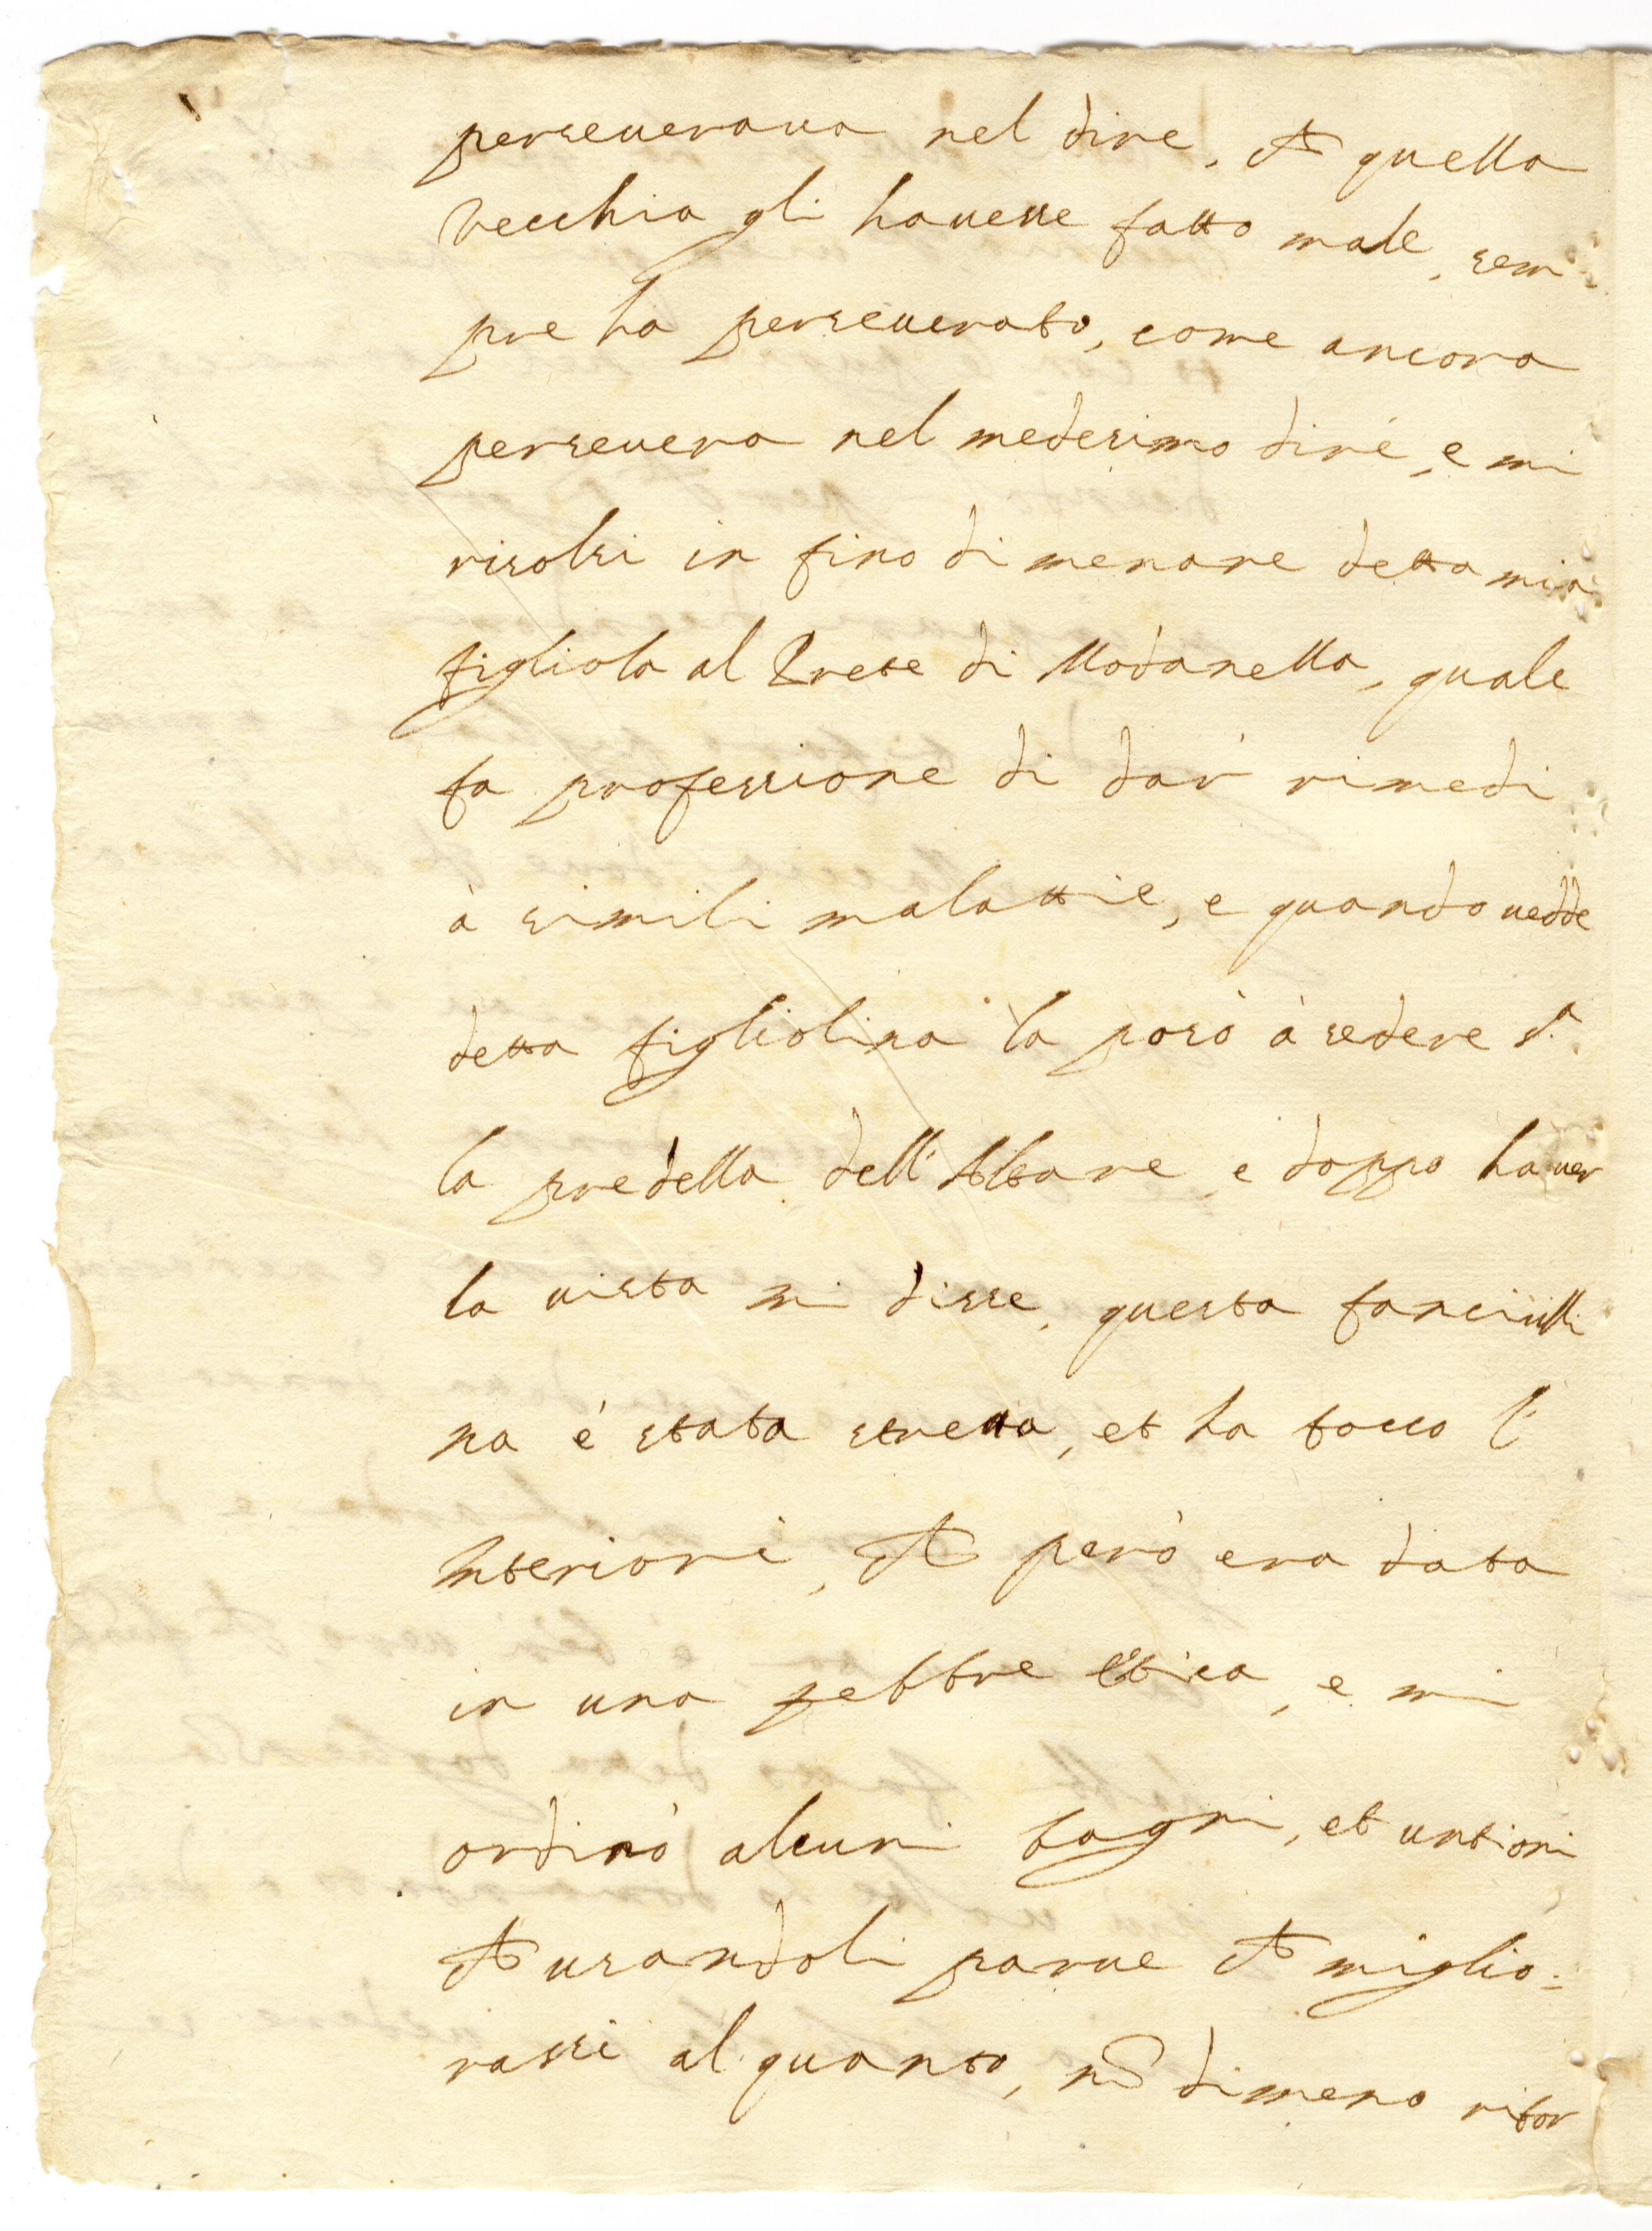 perseuerana nel dire, che quella
Vecchia gli hauesse fatto male, sem
pre ha perseuerato, come ancora
perseuera nel medesimo dire, e mi
risolsi in fino di menare detta mia
figliola al Prete di Modanella, quale
fa professione di dar' rimedi
à simili malattie, e quando uedde
detta figliolina la posò à sedere s.ª
la predella dell'Altare, e doppo hauer
la uista mi disse, questa fanciulli
na è stata stretta, et ha tocco l'
Interiori, che però era data
in una febbre Etica, e mi
ordinò alcuni bagni, et untioni
che usandoli parue che miglio=
rassi al quanto, nō dimeno ritor